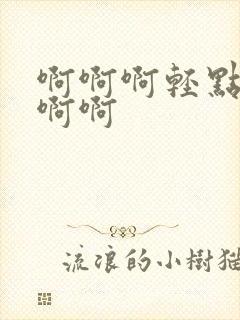 啊啊啊輕點
啊啊
流浪的小樹猫